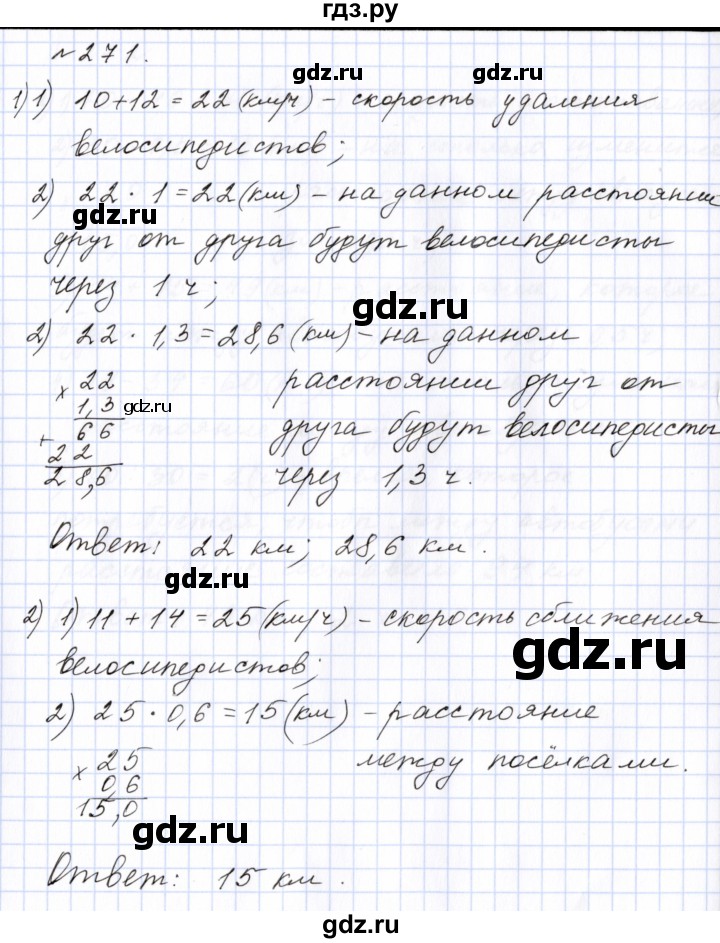 гдз.ру
№271.
gdz.ru gdz.ru
1) 1) 10+12 = 22 (км/ч) - скорость удаления
велосипедистов;
2) 22 · 1 = 22 (км) - на данном расстоянии
gdz.ru gdz.ru
друг от друга будут велосипедисты
через 1 ч;
gdz.ru
2) 22 · 1,3 = 28,6 (км) - на данном
× 22 расстоянии друг от
1,3 gdz.ru
+ 66 друга будут велосипедисты
22
28,6 через 1,3 ч.
Ответ: 22 км; 28,6 км.
gdz.ru gdz.ru
2) 1) 11 + 14 = 25 (км/ч) - скорость сближения
gdz.ru
велосипедистов;
2) 25 · 0,6 = 15 (км) - расстояние
× 25 между посёлками.
0,6
15,0
gdz.ru gdz.ru
Ответ: 15 км.
gdz.ru